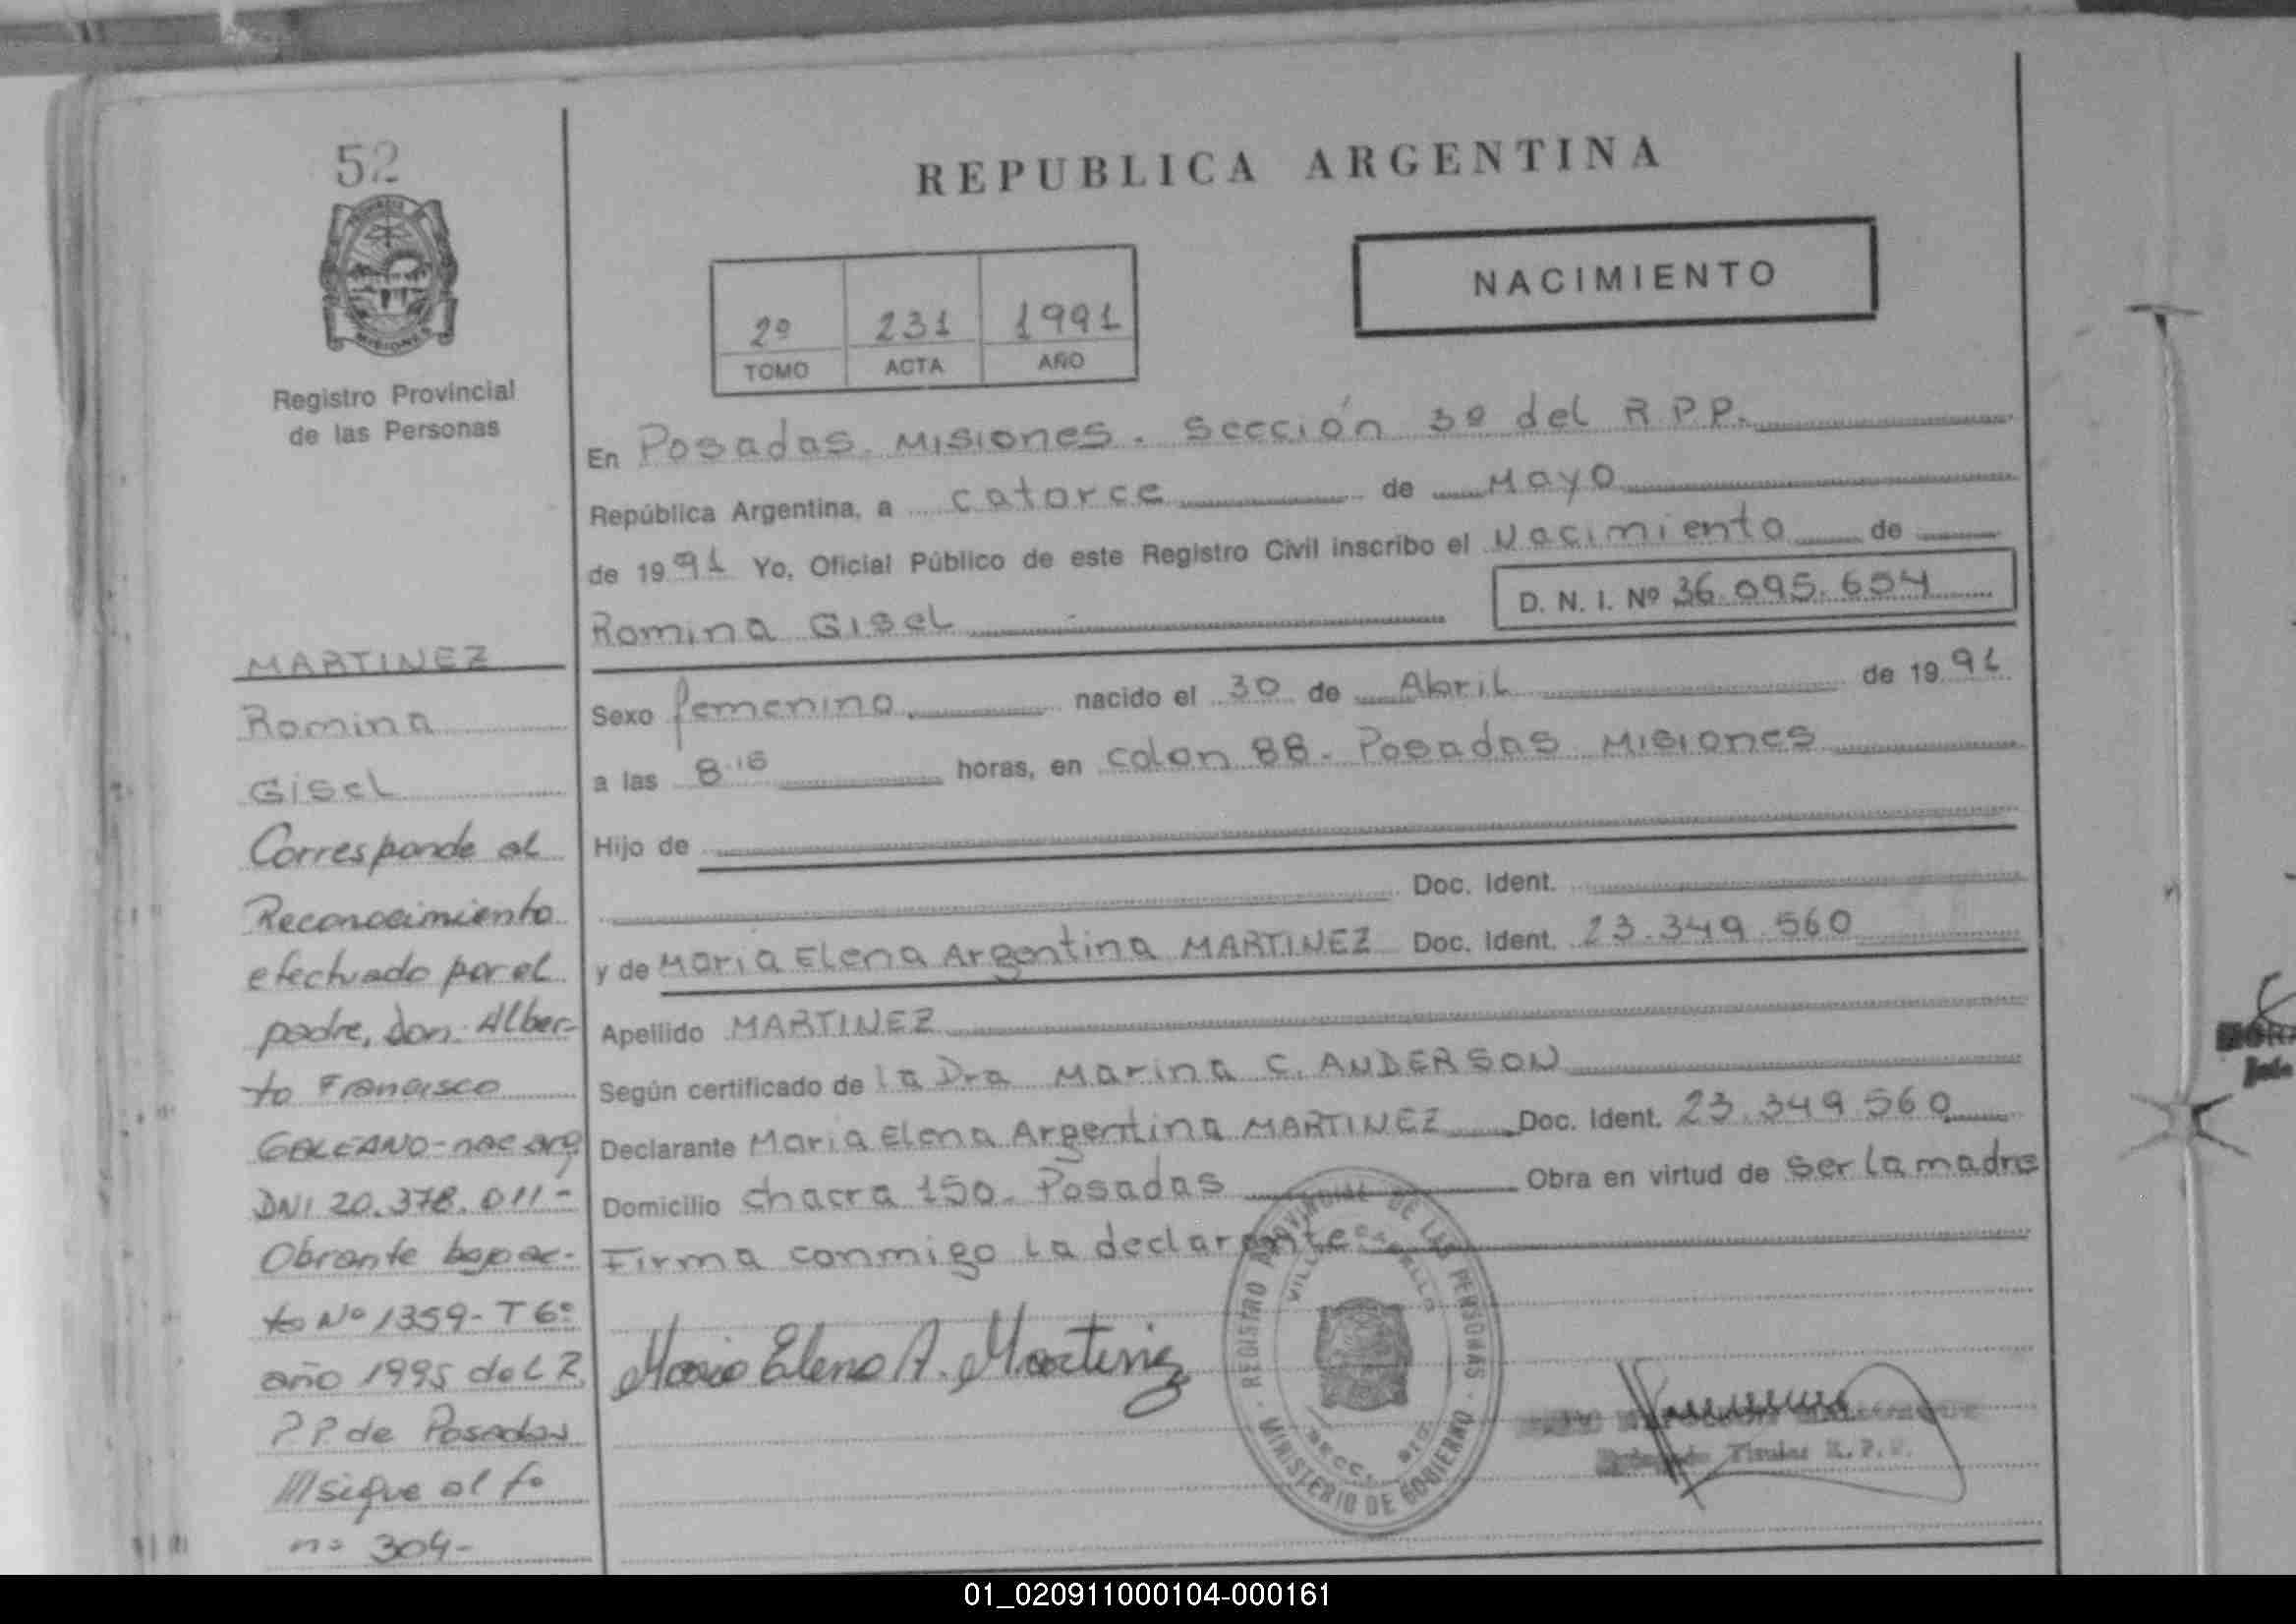 52
PROVINCIA
MISIONES
Registro Provincial
de las Personas
MARTINEZ
Romina
Gisel
Corresponde al
Reconocimiento
efectuado por el
padre, don Alber-
to Francisco
GALEANO-nac arg
DNI 20.378.011-
Obrante bajo ac-
to Nº 1359-T 6º
año 1995 del R.
P.P. de Posadas
///sigue al fo
nº 304-
REPUBLICA ARGENTINA
NACIMIENTO
2º 231 1991
TOMO ACTA AÑO
En Posadas. Misiones. Sección 3º del R.P.P.
República Argentina, a catorce de Mayo
de 1991 Yo, Oficial Público de este Registro Civil inscribo el Nacimiento de
Romina Gisel D. N. I. Nº 36.095.654
Sexo femenino nacido el 30 de Abril de 1991
a las 8.15 horas, en colon 88. Posadas Misiones
Hijo de
Doc. Ident.
y de Maria Elena Argentina MARTINEZ Doc. Ident. 23.349.560
Apellido MARTINEZ
Según certificado de la Dra Marina C. ANDERSON
Declarante Maria Elena Argentina MARTINEZ Doc. Ident. 23.349.560
Domicilio chacra 150. Posadas Obra en virtud de ser la madre
Firma conmigo la declarante
Maria Elena A. Martinez
REGISTRO PROVINCIAL DE LAS PERSONAS
MINISTERIO DE GOBIERNO
Titular R.P.P.
01_020911000104-000161